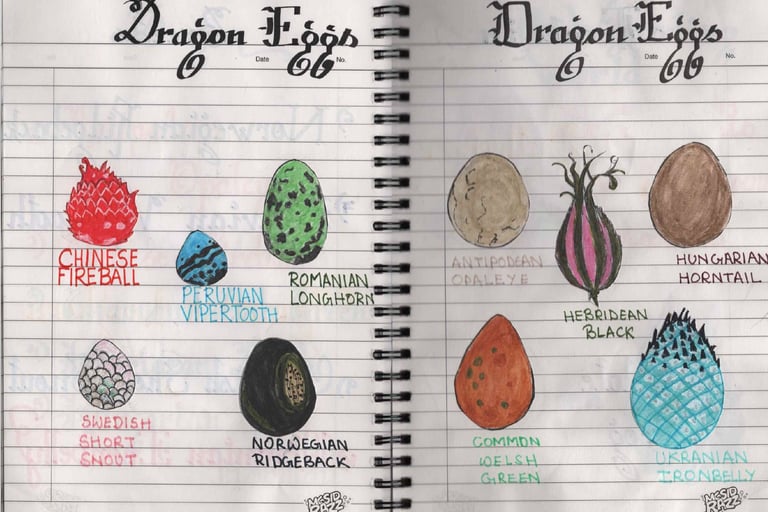 Dragon Eggs
Date
No.
CHINESE
FIREBALL
PERUVIAN
VIPERTOOTH
ROMANIAN
LONGHORN
SWEDISH
SHORT
SNOUT
NORWEGIAN
RIDGEBACK
MCSID
RAZZ
Dragon Eggs
Date
No.
ANTIPODEAN
OPALEYE
HEBRIDEAN
BLACK
HUNGARIAN
HORNTAIL
COMMON
WELSH
GREEN
UKRANIAN
IRONBELLY
MCSID
RAZZ